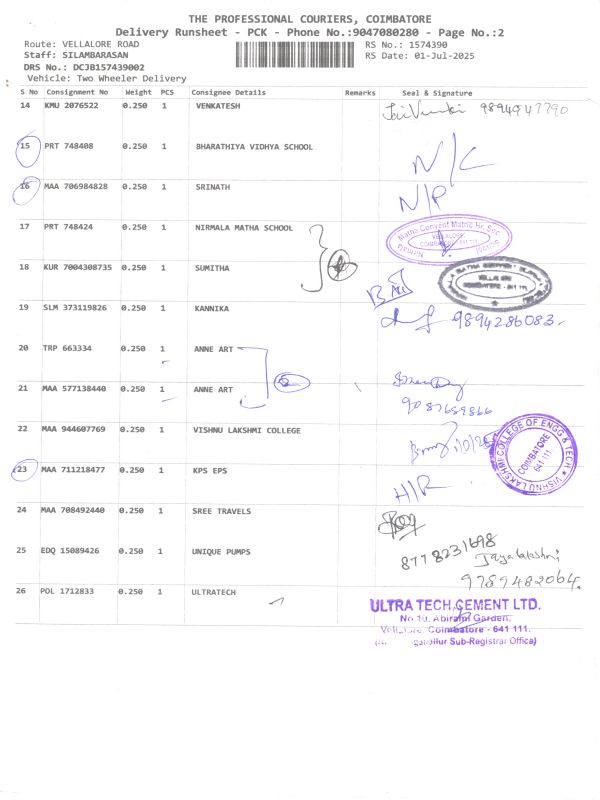 THE PROFESSIONAL COURIERS, COIMBATORE
Delivery Runsheet - PCK - Phone No.:9047080280 - Page No.:2
Route: VELLALORE ROAD RS No.: 1574390
Staff: SILAMBARASAN RS Date: 01-Jul-2025
DRS No.: DCJB157439002
Vehicle: Two Wheeler Delivery
S No Consignment No Weight PCS Consignee Details Remarks Seal & Signature
14 KMU 2076522 0.250 1 VENKATESH 9894947790
15 PRT 748408 0.250 1 BHARATHIYA VIDHYA SCHOOL N/C
16 MAA 706984828 0.250 1 SRINATH N/P
17 PRT 748424 0.250 1 NIRMALA MATHA SCHOOL
Matha Convent Matric Hr. Sec.
VELLALORE
18 KUR 7004308735 0.250 1 SUMITHA
19 SLM 373119826 0.250 1 KANNIKA 9894286083
20 TRP 663334 0.250 1 ANNE ART
21 MAA 577138440 0.250 1 ANNE ART 2
9087659866
22 MAA 944607769 0.250 1 VISHNU LAKSHMI COLLEGE
VISHNU LAKSHMI COLLEGE OF ENGG & TECH
COIMBATORE
641 111.
23 MAA 711218477 0.250 1 KPS EPS H/R
24 MAA 708492440 0.250 1 SREE TRAVELS
25 EDQ 15089426 0.250 1 UNIQUE PUMPS 8778231698 Jayalakshmi
9789482064.
26 POL 1712833 0.250 1 ULTRATECH
ULTRA TECH CEMENT LTD.
No 19, Abirami Garden,
Vellalore, Coimbatore - 641 111.
Sub-Registrar Office)